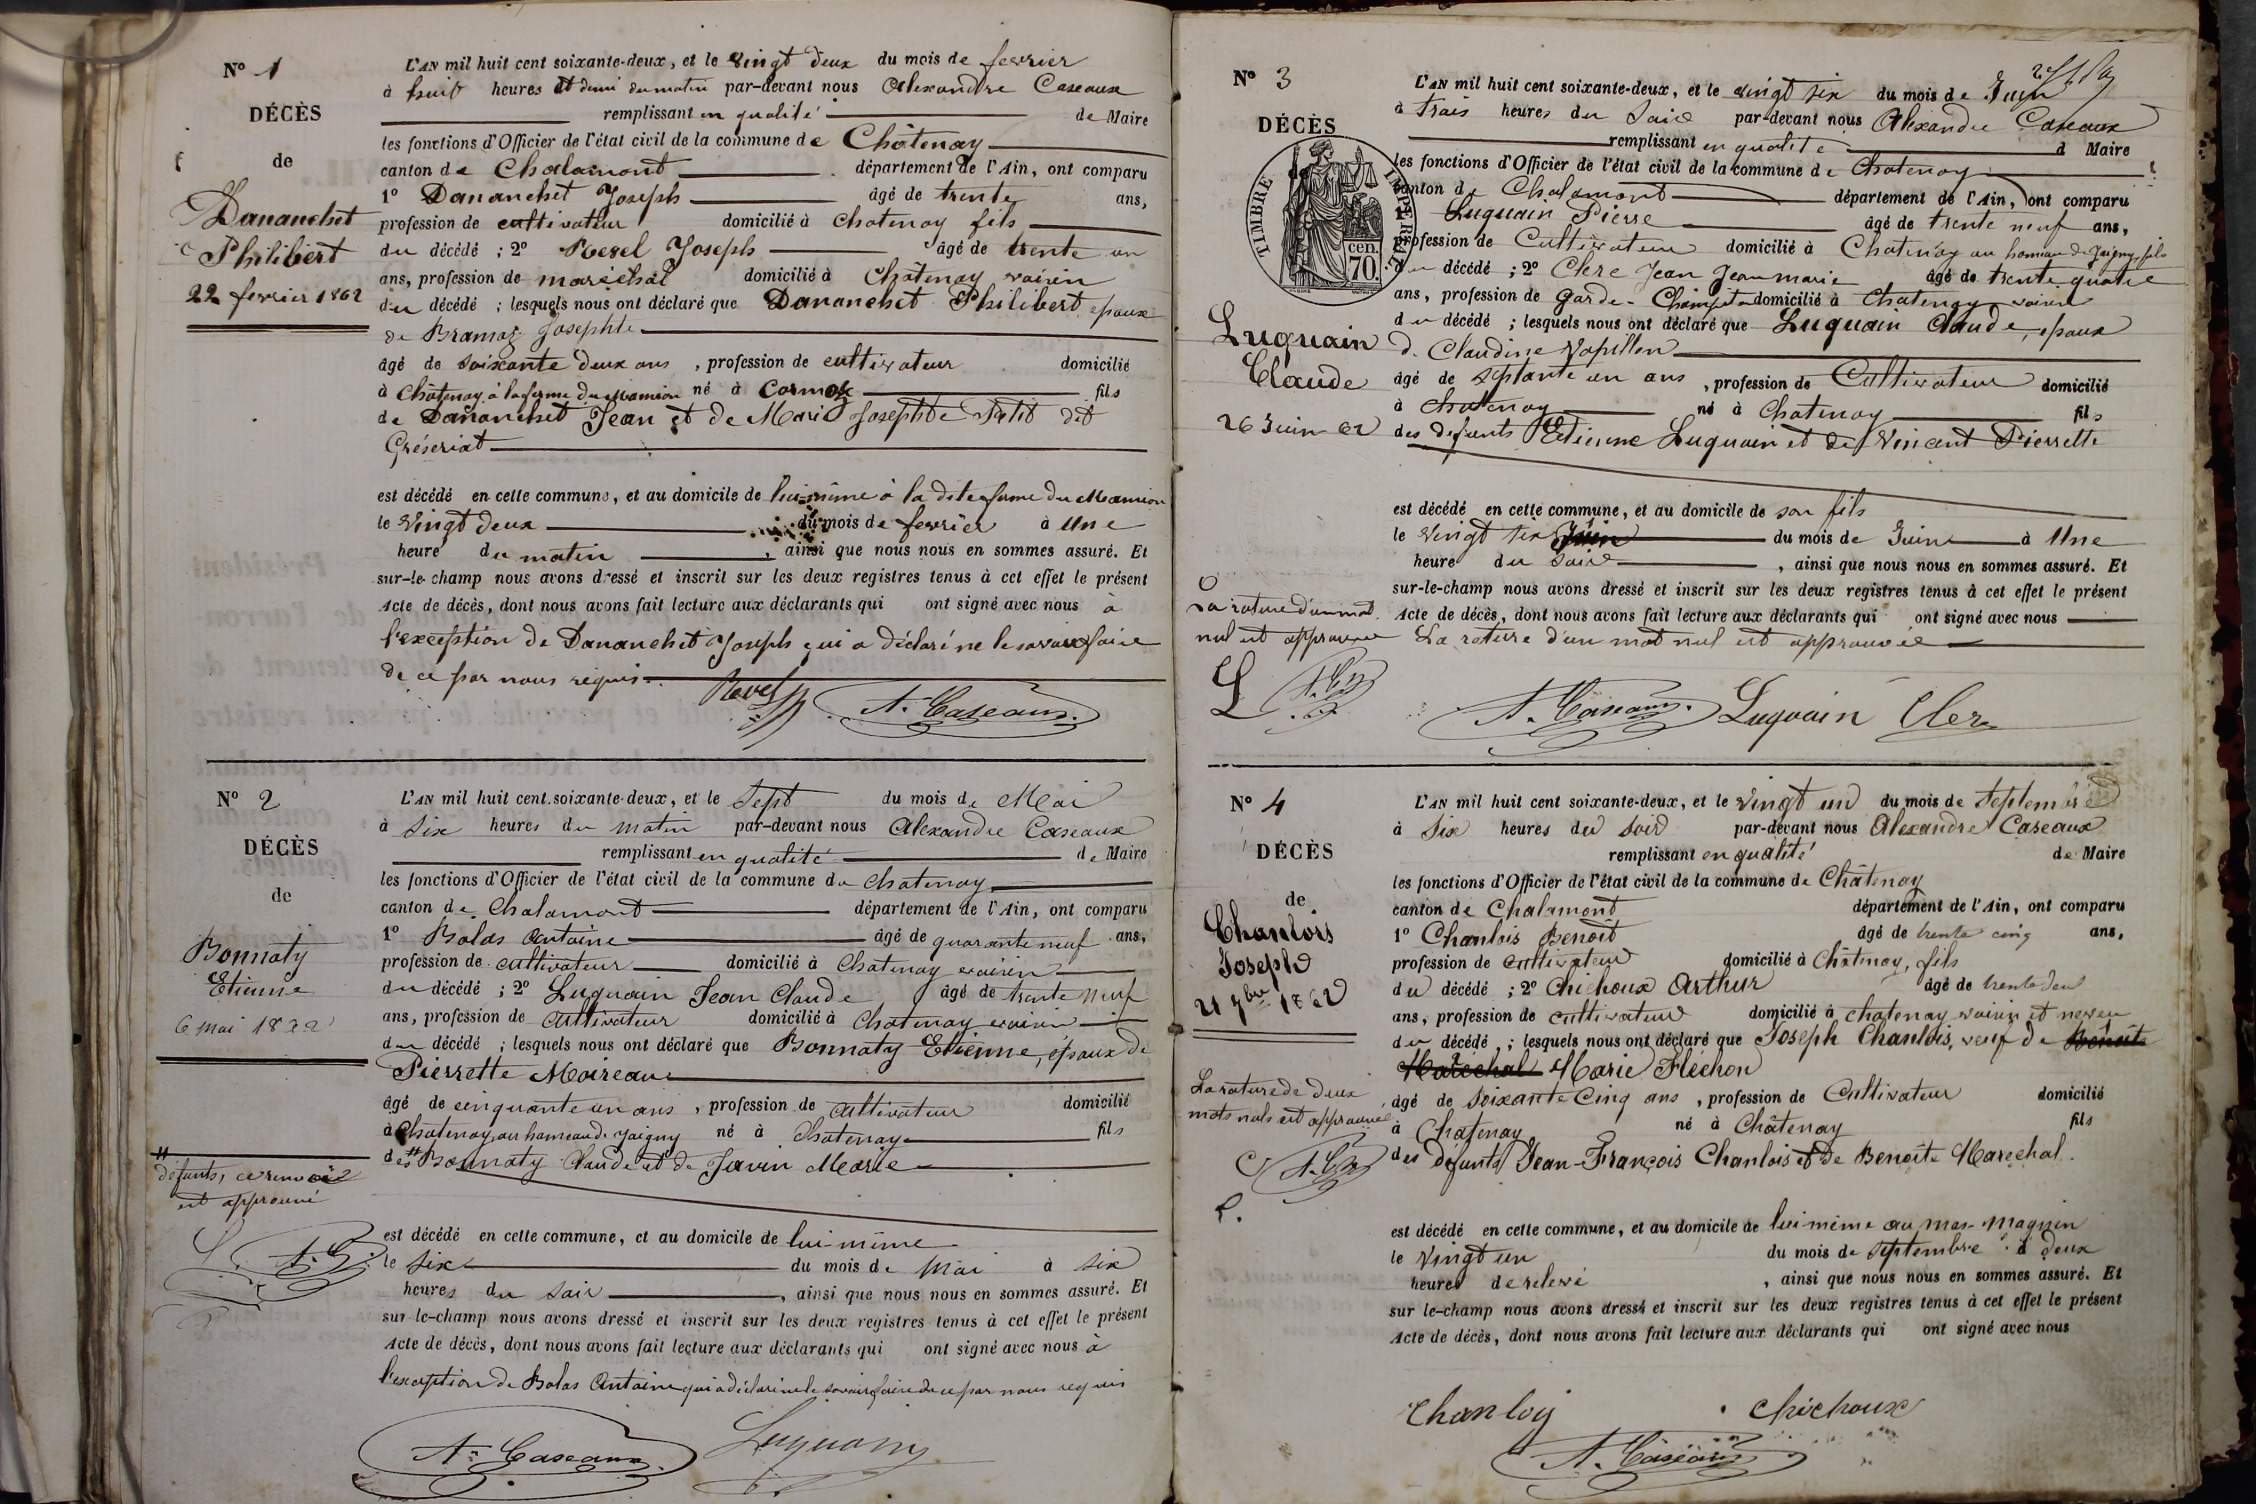 N° 1
DÉCÈS
de
Dananchet
Philibert
22 fevrier 1862
L'AN mil huit cent soixante-deux, et le vingt deux du mois de fevrier
à huit heures et demi du matin par-devant nous Alexandre Caseaux
remplissant en qualité de Maire
les fonctions d'Officier de l'état civil de la commune de Châtenay
canton de Chalamont département de l'Ain, ont comparu
1° Dananchet Joseph âgé de trente ans,
profession de cultivateur domicilié à Chatenay fils
du décédé ; 2° Revel Joseph âgé de trente un
ans, profession de maréchal domicilié à Châtenay voisin
du décédé ; lesquels nous ont déclaré que Dananchet Philibert epoux
de Bramaz Josephte
âgé de soixante deux ans, profession de cultivateur domicilié
à Châtenay, à la ferme du Mamion né à Cormoz fils
de Dananchet Jean et de Marie Josephte Petit dit
Gréseriat
est décédé en cette commune, et au domicile de lui-même à la dite ferme du Mamion
le vingt deux du mois de fevrier à une
heure du matin, ainsi que nous nous en sommes assuré. Et
sur-le-champ nous avons dressé et inscrit sur les deux registres tenus à cet effet le présent
Acte de décès, dont nous avons fait lecture aux déclarants qui ont signé avec nous à
l'exception de Dananchet Joseph qui a déclaré ne le savoir faire
de ce par nous requis.
Revel A. Caseaux
N° 2
DÉCÈS
de
Bonnaty
Etienne
6 mai 1862
L'AN mil huit cent soixante-deux, et le Sept du mois de Mai
à six heures du matin par-devant nous Alexandre Caseaux
remplissant en qualité de Maire
les fonctions d'Officier de l'état civil de la commune de Chatenay
canton de Chalamont département de l'Ain, ont comparu
1° Bolas Antoine âgé de quarante neuf ans,
profession de cultivateur domicilié à Chatenay voisin
du décédé ; 2° Luquain Jean Claude âgé de trente neuf
ans, profession de cultivateur domicilié à Chatenay voisin
du décédé ; lesquels nous ont déclaré que Bonnaty Etienne, époux de
Pierrette Moireau
âgé de cinquante un ans, profession de cultivateur domicilié
à Chatenay au hameau de Joigny né à Chatenay fils
des # Bonnaty Claude et de Javin Marie
# défunts, ce renvoi
est approuvé
L. A. C.
est décédé en cette commune, et au domicile de lui-même
le six du mois de Mai à six
heures du soir, ainsi que nous nous en sommes assuré. Et
sur-le-champ nous avons dressé et inscrit sur les deux registres tenus à cet effet le présent
Acte de décès, dont nous avons fait lecture aux déclarants qui ont signé avec nous à
l'exception de Bolas Antoine qui a déclaré ne le savoir faire de ce par nous requis
A. Caseaux Luquain
N° 3
DÉCÈS
TIMBRE IMPÉRIAL
70 cen.
Luquain
Claude
26 Juin 62
L'AN mil huit cent soixante-deux, et le vingt six du mois de Juin
à trois heures du soir par-devant nous Alexandre Caseaux
remplissant en qualité d Maire
les fonctions d'Officier de l'état civil de la commune de Chatenay
canton de Chalamont département de l'Ain, ont comparu
Luquain Pierre âgé de trente neuf ans,
profession de Cultivateur domicilié à Chatenay au hameau de Joigny, fils
du décédé ; 2° Clerc Jean Jeanmarie âgé de trente quatre
ans, profession de Garde-Champêtre domicilié à Chatenay voisin
du décédé ; lesquels nous ont déclaré que Luquain Claude, epoux
d. Claudine Vapillon
âgé de septante un ans, profession de Cultivateur domicilié
à Chatenay né à Chatenay fils
des défunts Etienne Luquain et de Vincent Pierrette
est décédé en cette commune, et au domicile de son fils
le vingt six Juin du mois de Juin à Une
heure du soir, ainsi que nous nous en sommes assuré. Et
sur-le-champ nous avons dressé et inscrit sur les deux registres tenus à cet effet le présent
Acte de décès, dont nous avons fait lecture aux déclarants qui ont signé avec nous
La rature d'un mot nul est approuvée
La rature d'un mot
nul est approuvée
L A. C.
A. Caseaux Luquain Clerc
N° 4
DÉCÈS
de
Chanlois
Joseph
21 7bre 1862
L'AN mil huit cent soixante-deux, et le vingt un du mois de Septembre
à Six heures du soir par-devant nous Alexandre Caseaux
remplissant en qualité de Maire
les fonctions d'Officier de l'état civil de la commune de Châtenay
canton de Chalamont département de l'Ain, ont comparu
1° Chanlois Benoit âgé de trente cinq ans,
profession de cultivateur domicilié à Châtenay, fils
du décédé ; 2° Chichoux Arthur âgé de trente deux
ans, profession de cultivateur domicilié à chatenay voisin et neveu
du décédé ; lesquels nous ont déclaré que Joseph Chanlois, veuf de Benoite
Maréchal Marie Fléchon
âgé de soixante cinq ans, profession de Cultivateur domicilié
à Chatenay né à Châtenay fils
des défunts Jean-François Chanlois et de Benoite Maréchal.
La rature de deux
mots nuls est approuvée
C A. C.
est décédé en cette commune, et au domicile de lui même au mas-Magnin
le vingt un du mois de septembre à deux
heures de relevé, ainsi que nous nous en sommes assuré. Et
sur le-champ nous avons dressé et inscrit sur les deux registres tenus à cet effet le présent
Acte de décès, dont nous avons fait lecture aux déclarants qui ont signé avec nous
Chanloy Chichoux
A. Caseaux